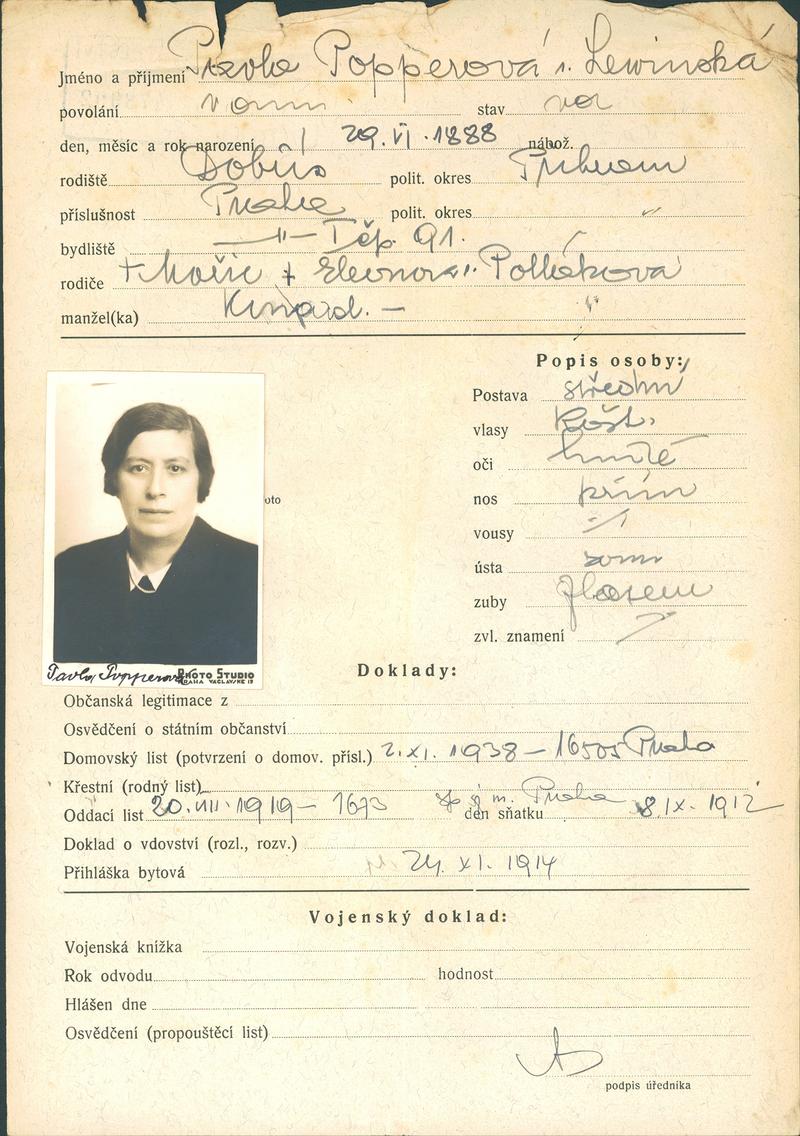 Jméno a příjmení Pavla Popperová r. Lewinská
povolání
stav
den, měsíc a rok narození 29. VI. 1888 nábož.
rodiště Dobříš polit. okres Příbram
příslušnost Praha polit. okres "
bydliště —"— 91.
rodiče + Mořic + Eleonora r. Pollaková
manžel(ka) —"
Popis osoby:
Postava střední
vlasy kašt.
oči hnědé
oto
nos přím
vousy
ústa
zuby
zvl. znamení
Pavla Popperová PHOTO STUDIO
PRAHA VACLAVSKE 19
Doklady:
Občanská legitimace z
Osvědčení o státním občanství
Domovský list (potvrzení o domov. přísl.) 2. XI. 1938 – 16505 Praha
Křestní (rodný list)
Oddací list 20. VIII. 1919 – 1673 Praha den sňatku 8. IX. 1912
Doklad o vdovství (rozl., rozv.)
Přihláška bytová 24. XI. 1914
Vojenský doklad:
Vojenská knížka
Rok odvodu hodnost
Hlášen dne
Osvědčení (propouštěcí list)
podpis úředníka